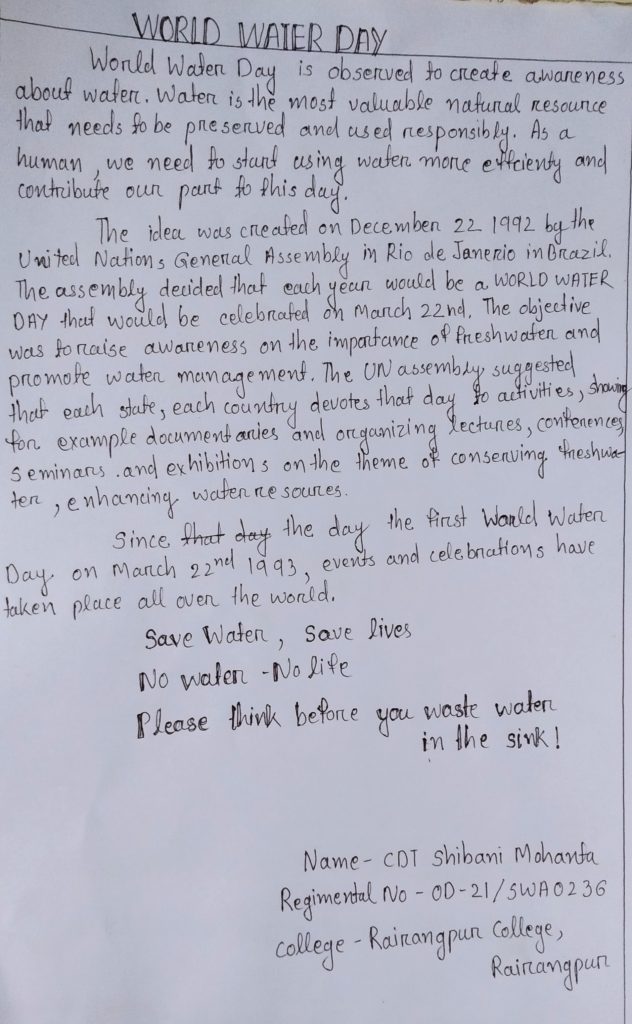 WORLD WATER DAY
World Water Day is observed to create awareness
about water. Water is the most valuable natural resource
that needs to be preserved and used responsibly. As a
human, we need to start using water more efficienty and
contribute our part to this day.
The idea was created on December 22 1992 by the
United Nations General Assembly in Rio de Janerio in Brazil.
The assembly decided that each year would be a WORLD WATER
DAY that would be celebrated on March 22nd. The objective
was to raise awareness on the importance of freshwater and
promote water management. The UN assembly suggested
that each state, each country devotes that day to activities, showing
for example documentaries and organizing lectures, conferences,
seminars .and exhibitions on the theme of conserving freshwa-
ter, enhancing water resoures.
Since that day the day the first World Water
Day on March 22nd 1993, events and celebrations have
taken place all over the world.
Save Water, Save lives
No water - No life
Please think before you waste water
in the sink!
Name- CDT Shibani Mohanta
Regimental No - OD-21/SWA0236
college - Rairangpur College,
Rairangpur